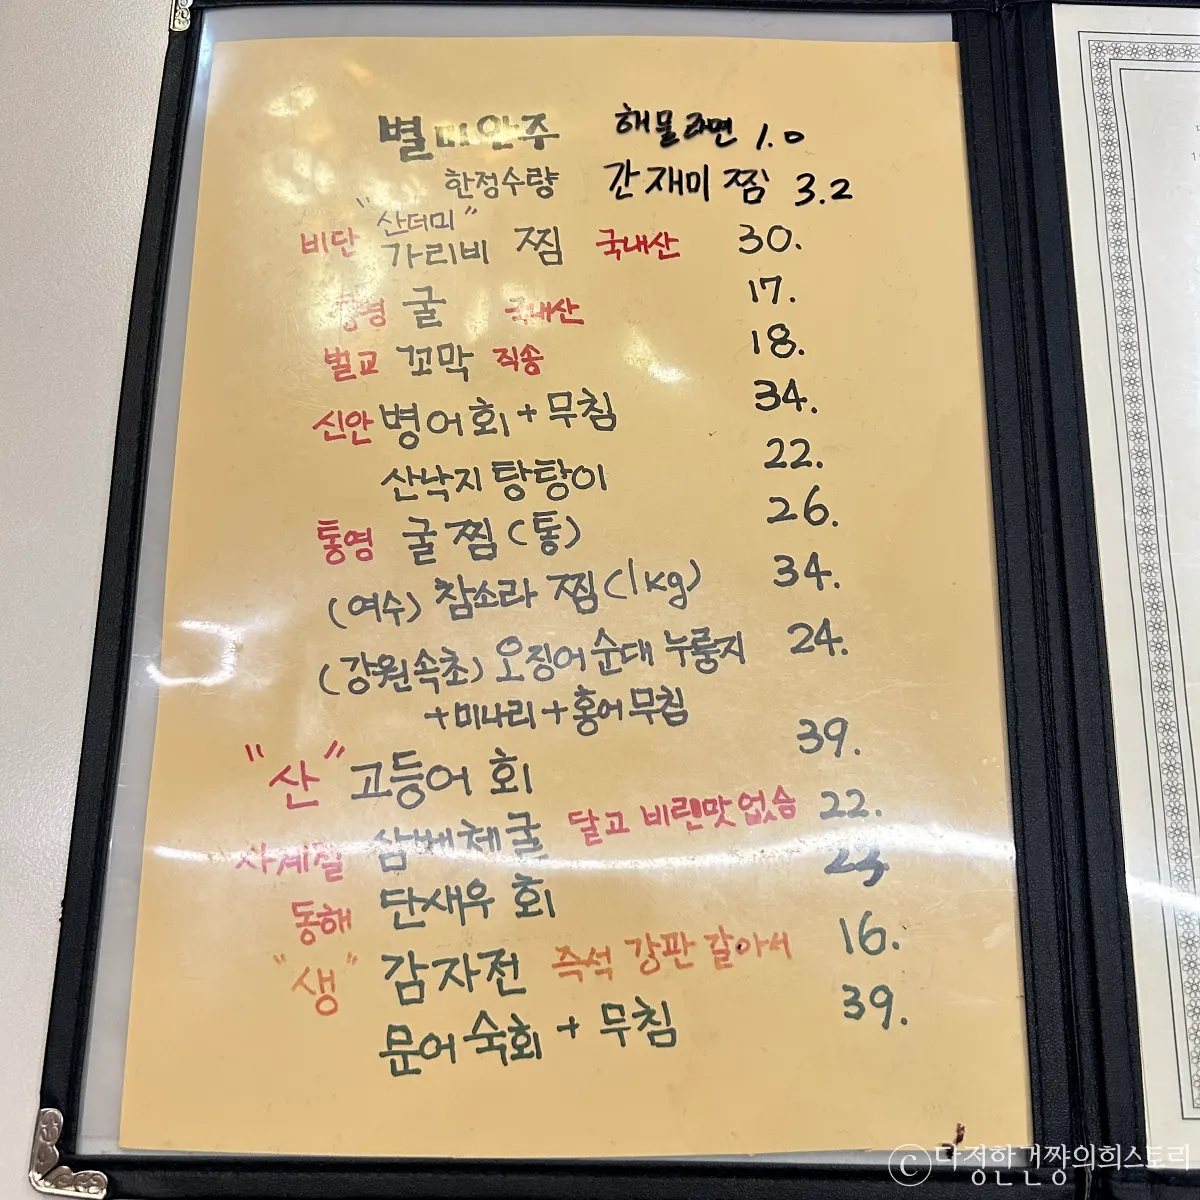 별미안주 해물라면 1.0
한정수량 간재미 찜 3.2
"산더미"
비단 가리비 찜 국내산 30.
굴 국내산 17.
벌교 꼬막 직송 18.
신안 병어회 + 무침 34.
산낙지 탕탕이 22.
통영 굴찜 (통) 26.
(여수) 참소라 찜 (1kg) 34.
(강원속초) 오징어순대 누룽지 24.
+ 미나리 + 홍어무침
"산" 고등어 회 39.
사계절 삼배체굴 달고 비린맛 없슴 22.
동해 단새우 회 23
"생" 감자전 즉석 강판 갈아서 16.
문어숙회 + 무침 39.
ⓒ다정한건쨩의희스토리